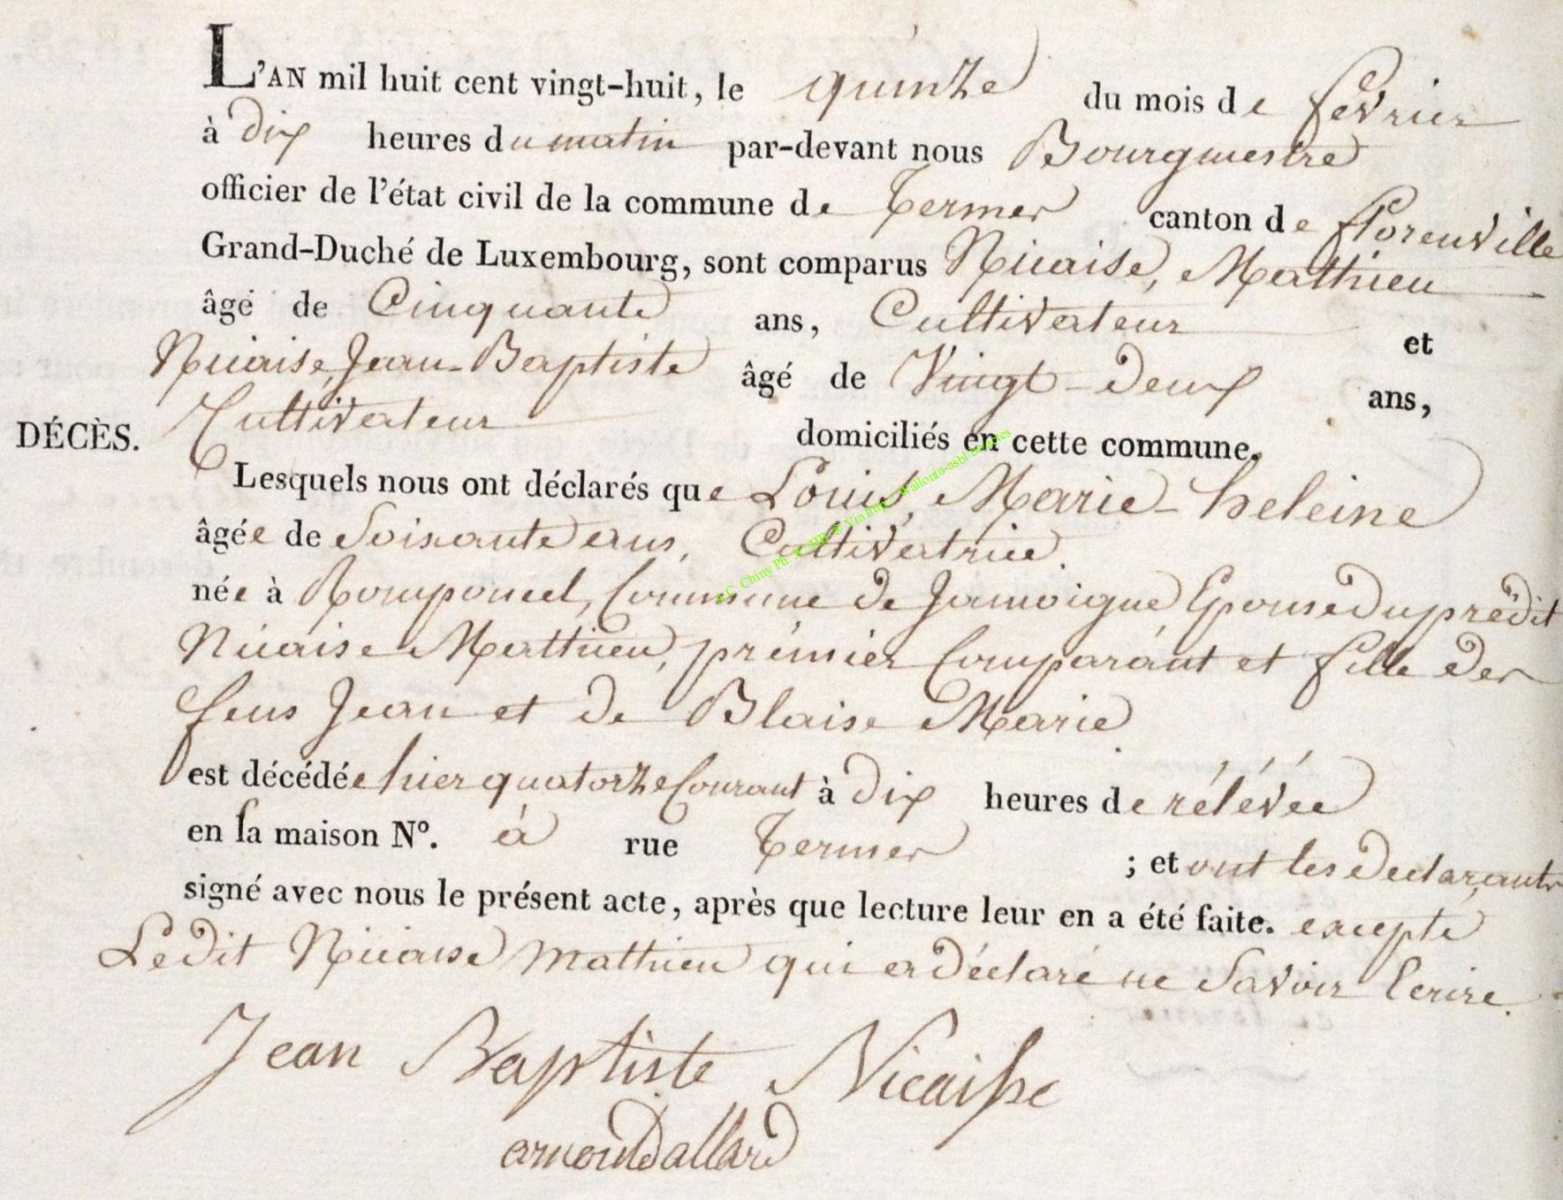 L'AN mil huit cent vingt-huit, le quinze du mois de fevrier
à dix heures du matin par-devant nous Bourgmestre
officier de l'état civil de la commune de Termer canton de florenville
Grand-Duché de Luxembourg, sont comparus Nicaise, Mathieu
âgé de Cinquante ans, Cultivateur et
Nicaise, Jean-Baptiste âgé de Vingt-deux ans,
Cultivateur domiciliés en cette commune.
DÉCÈS.
Lesquels nous ont déclarés que Louis, Marie-heleine
âgée de Soixante ans, Cultivatrice.
née à Romponcel, Commune de Jamoigne, Epouse du prédit
Nicaise Mathieu, prémier Comparant et fille des
feus Jean et de Blaise Marie
est décédée hier quatorze Courant à dix heures de rélévée
en sa maison N°. à rue Termer ; et ont les declarants
signé avec nous le présent acte, après que lecture leur en a été faite. excepté
Ledit Nicaise Mathieu qui a déclaré ne Savoir Ecrire.
Jean Baptiste Nicaisse
arnould allard